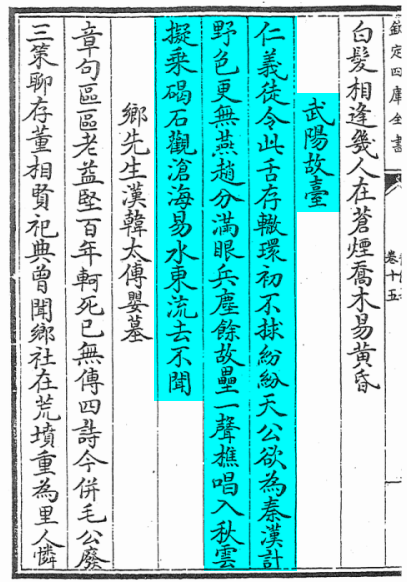 欽定四庫全書
卷十五
白髮相逢幾人在蒼煙喬木易黃昏
武陽故臺
仁義徒令此舌存轍環初不捄紛紛天公欲為秦漢計
野色更無燕趙分滿眼兵塵餘故壘一聲樵唱入秋雲
擬乘碣石觀滄海易水東流去不聞
鄉先生漢韓太傅嬰墓
章句區區老益堅百年軻死已無傳四詩今併毛公廢
三策聊存董相賢祀典曾聞鄉社在荒墳重為里人憐